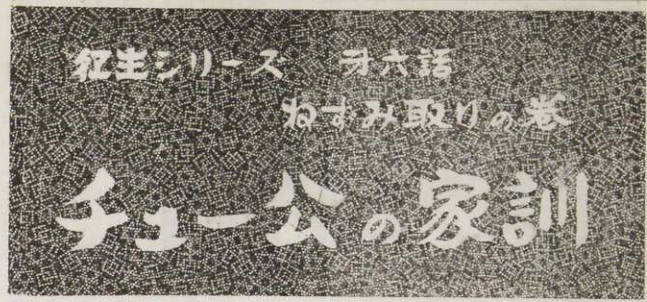 衛生シリーズ 才六話
ねずみ取りの巻
チュー公の家訓